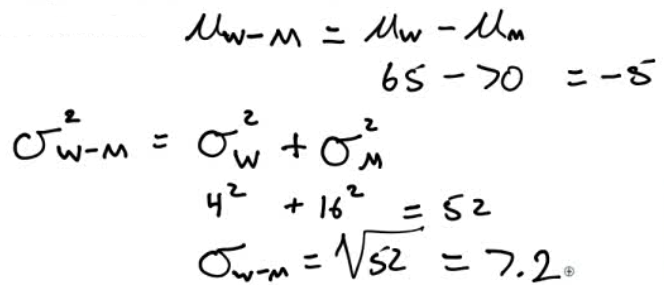 μ_{W-M} = μ_W - μ_M
65 - 70 = -5
σ²_{W-M} = σ²_W + σ²_M
4² + 16² = 52
σ_{W-M} = √52 = 7.2